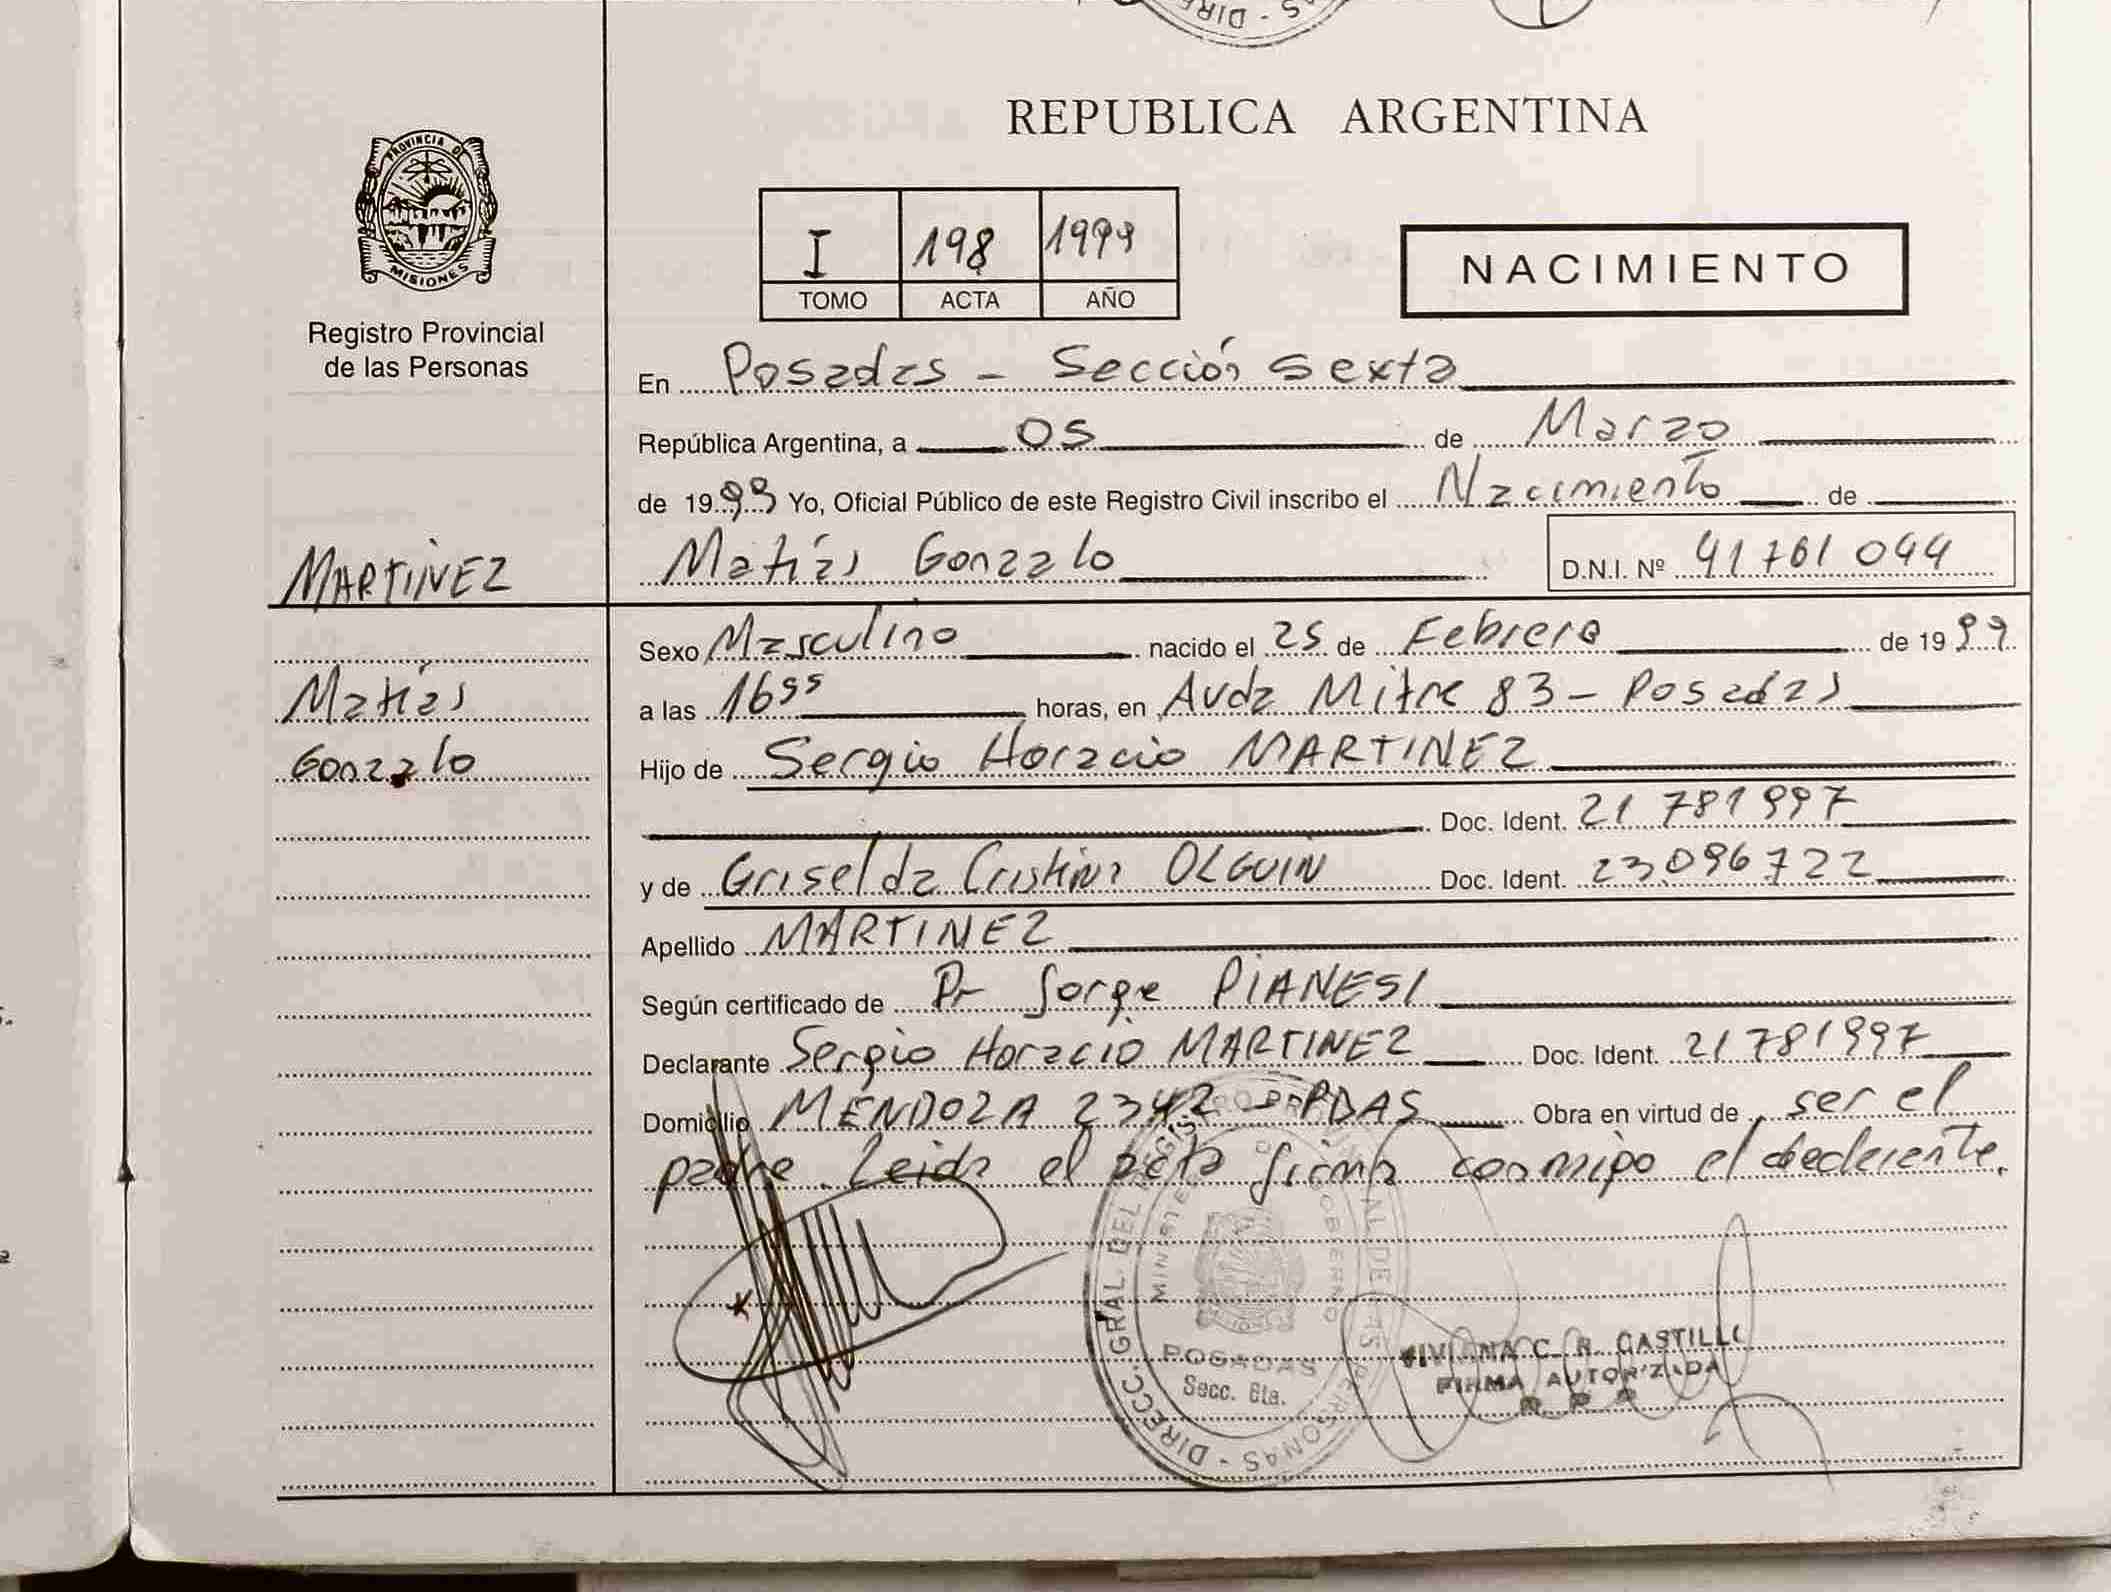 REPUBLICA ARGENTINA
PROVINCIA DE
MISIONES
Registro Provincial
de las Personas
I 198 1999
TOMO ACTA AÑO
NACIMIENTO
En Posadas - Sección Sexta
República Argentina, a 05 de Marzo
de 1999 Yo, Oficial Público de este Registro Civil inscribo el Nacimiento de
MARTINEZ Matías Gonzalo D.N.I. Nº 41761044
Sexo Masculino nacido el 25 de Febrero de 1999
Matías
Gonzalo
a las 16 55 horas, en Avda Mitre 83 - Posadas
Hijo de Sergio Horacio MARTINEZ
Doc. Ident. 21781997
y de Griselda Cristina OLGUIN Doc. Ident. 23096722
Apellido MARTINEZ
Según certificado de Dr Jorge PIANESI
Declarante Sergio Horacio MARTINEZ Doc. Ident. 21781997
Domicilio MENDOZA 2342 - PDAS Obra en virtud de ser el
padre. Leida el acta firma conmigo el declarante.
DIRECC. GRAL. DEL
POSADAS
Secc. 6ta.
C. R. CASTILLO
FIRMA AUTORIZADA